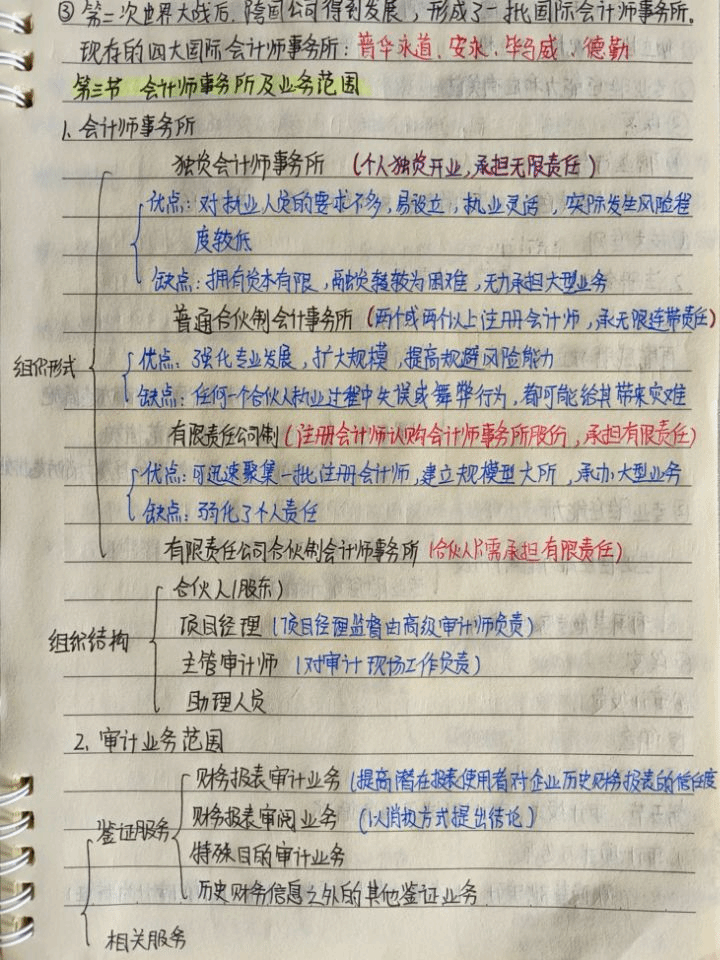 ③ 第二次世界大战后,跨国公司得到发展,形成了一批国际会计师事务所。
现存的四大国际会计师事务所:普华永道、安永、毕马威、德勤
第三节 会计师事务所及业务范围
1. 会计师事务所
独资会计师事务所 (个人独资开业,承担无限责任)
优点:对执业人员的要求不多,易设立,执业灵活,实际发生风险程
度较低
缺点:拥有资本有限,融资较为困难,无力承担大型业务
普通合伙制会计事务所 (两个或两个以上注册会计师,承无限连带责任)
组织形式
优点:强化专业发展,扩大规模,提高规避风险能力
缺点:任何一个合伙人执业过程中失误或舞弊行为,都可能给其带来灾难
有限责任公司制 (注册会计师认购会计师事务所股份,承担有限责任)
优点:可迅速聚集一批注册会计师,建立规模型大所,承办大型业务
缺点:弱化了个人责任
有限责任公司合伙制会计师事务所 (合伙人只需承担有限责任)
合伙人(股东)
项目经理 (项目经理监督由高级审计师负责)
组织结构
主管审计师 (对审计现场工作负责)
助理人员
2. 审计业务范围
财务报表审计业务 (提高潜在报表使用者对企业历史财务报表的信任度
财务报表审阅业务 (以消极方式提出结论)
鉴证服务
特殊目的审计业务
历史财务信息之外的其他鉴证业务
相关服务